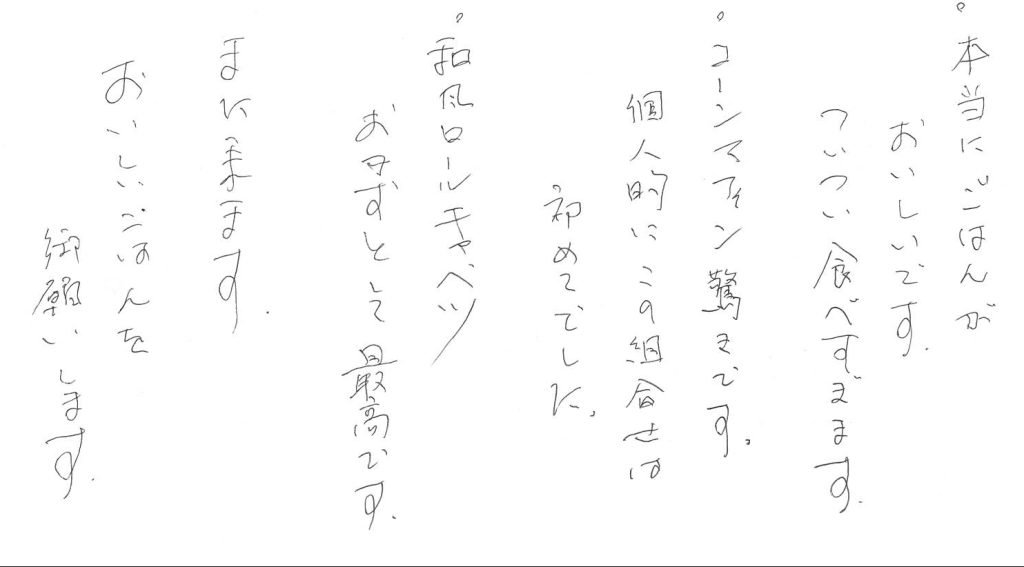 。本当にごはんが
おいしいです.
ついつい食べすぎます.
。コーンマフィン驚きです。
個人的にこの組合せは
初めてでした。
。和風ロールキャベツ
おかずとして最高です.
また来ます.
おいしいごはんを
御願いします.